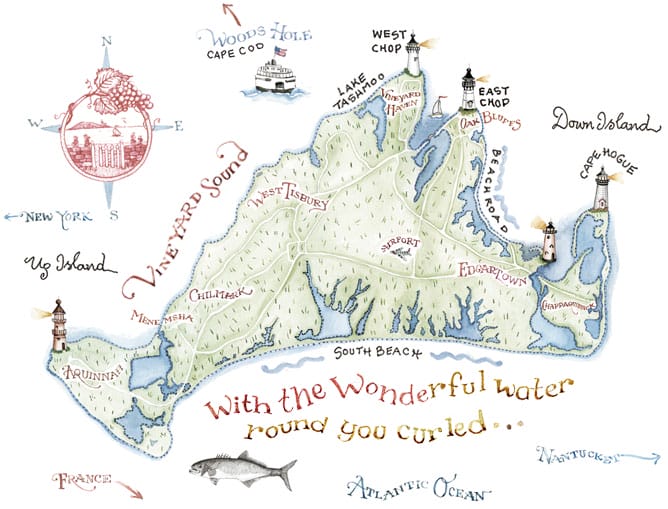 N
W
E
S
NEW YORK
WOODS HOLE
CAPE COD
WEST
CHOP
LAKE
TASHMOO
VINEYARD
HAVEN
EAST
CHOP
OAK BLUFFS
Down Island
CAPE HOGUE
BEACH ROAD
VINEYARD SOUND
WEST TISBURY
AIRPORT
EDGARTOWN
CHAPPAQUIDDICK
Up Island
CHILMARK
MENEMSHA
AQUINNAH
SOUTH BEACH
With the Wonderful water
round you curled...
FRANCE
ATLANTIC OCEAN
NANTUCKET